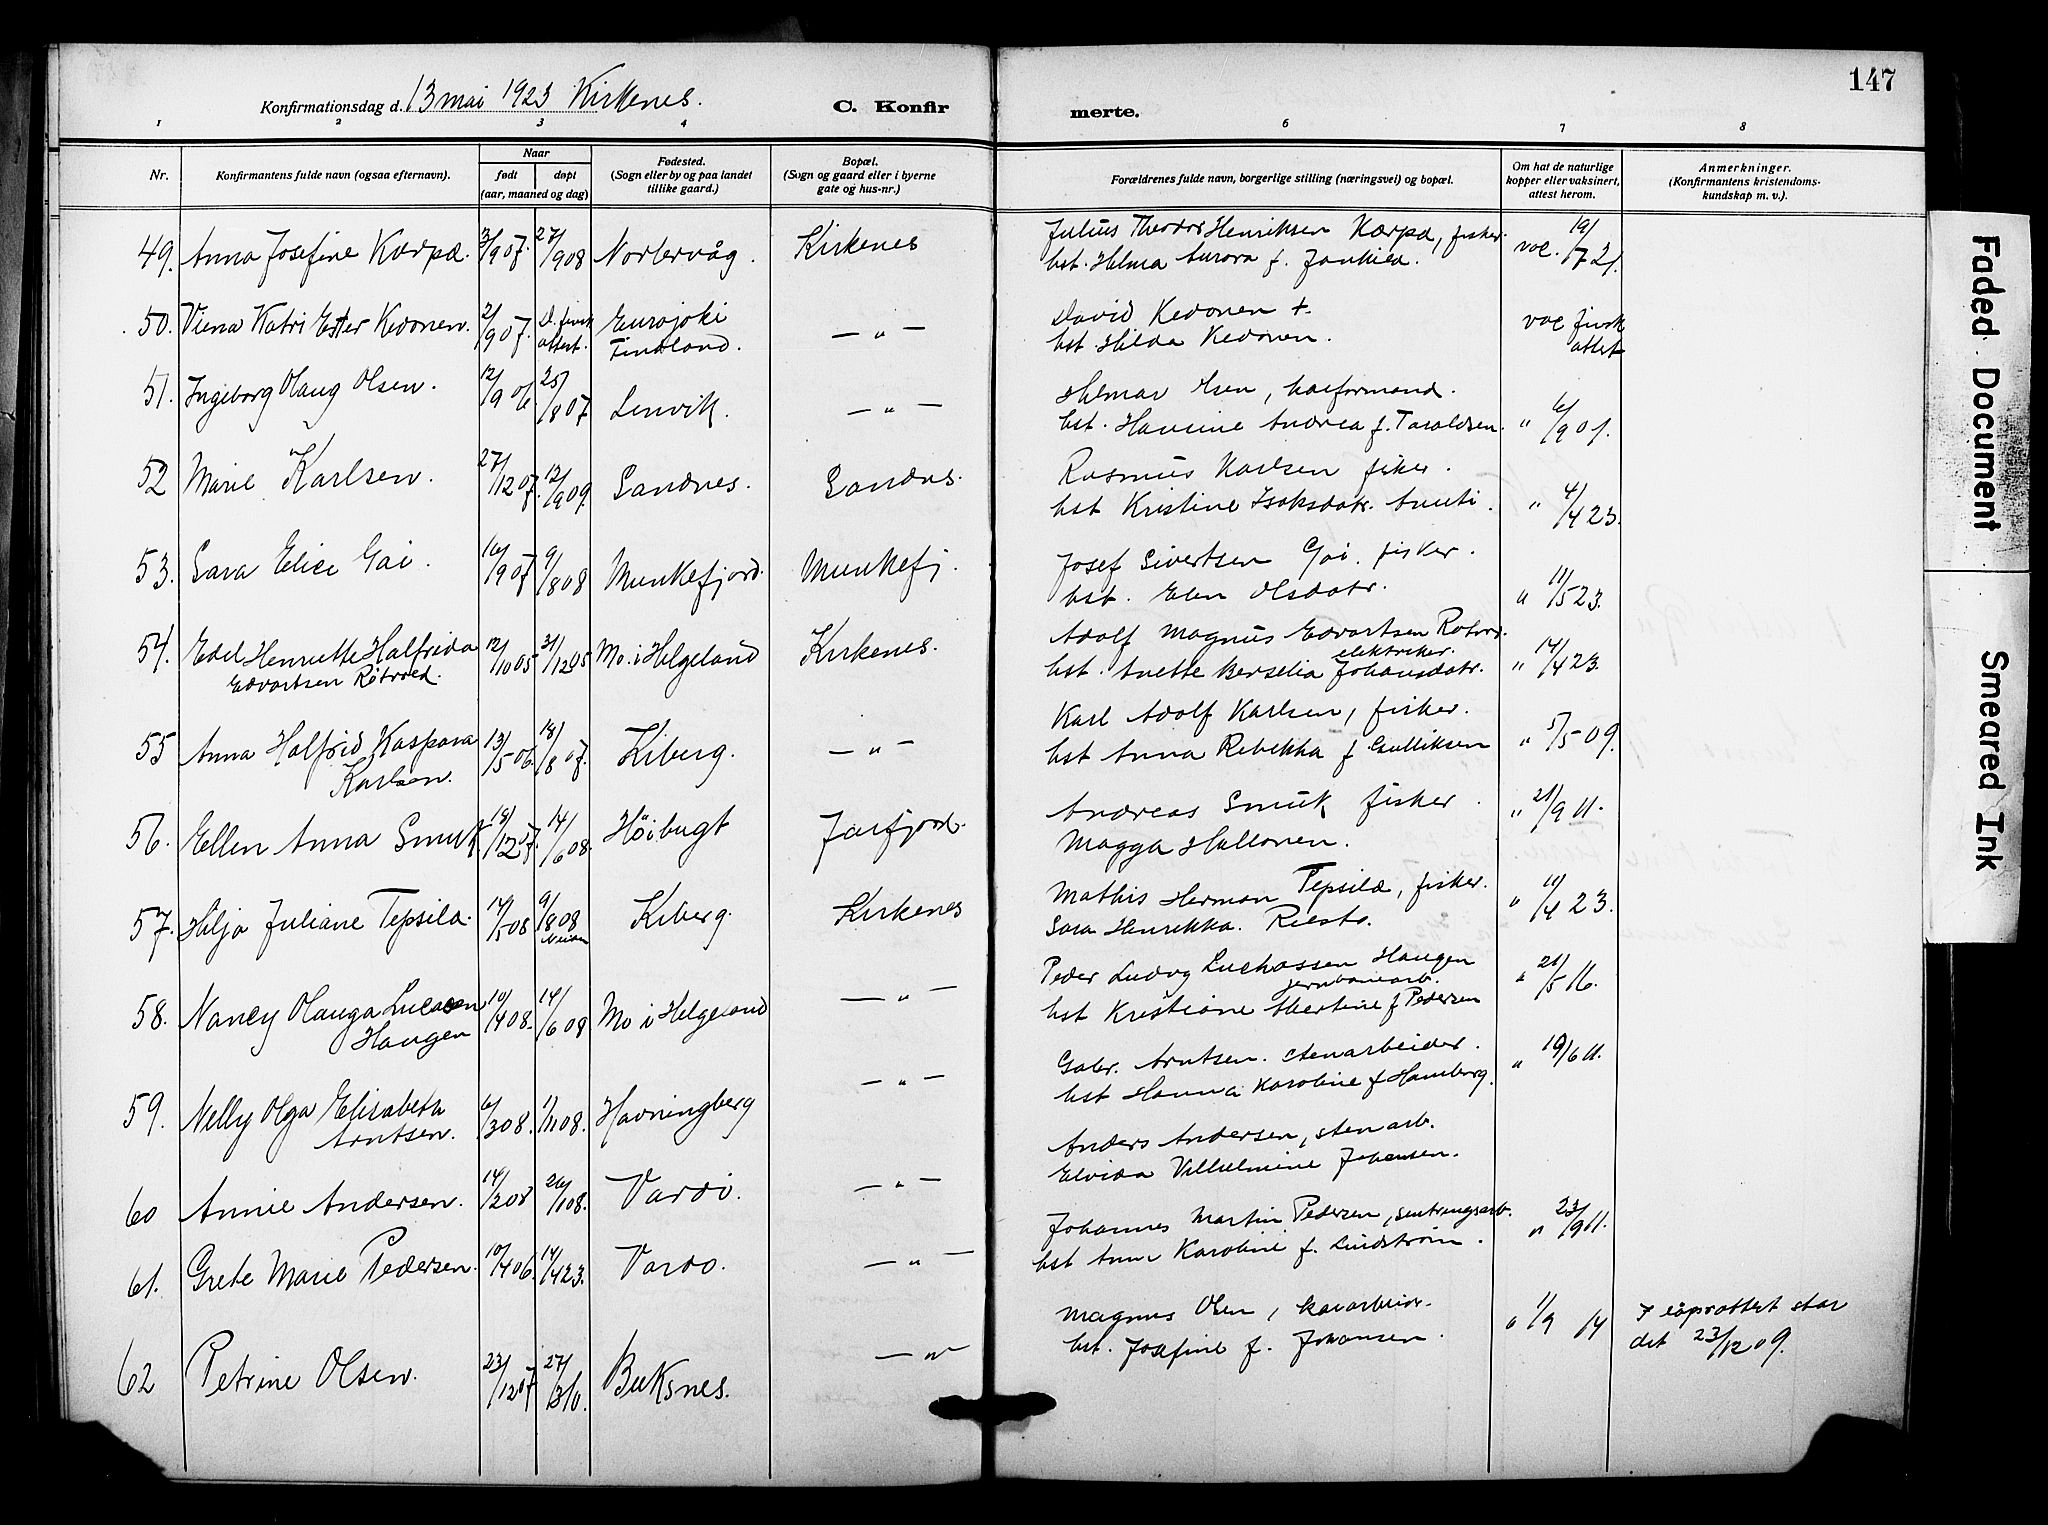 147
Konfirmationsdag d. 13 mai 1923 Kirkenes.
C. Konfirmerte.
1 2 3 4 6 7 8
Nr.
Konfirmantens fulde navn (ogsaa efternavn).
Naar
født
døpt
(aar, maaned og dag)
Fødested.
(Sogn eller by og paa landet
tillike gaard.)
Bopæl.
(Sogn og gaard eller i byerne
gate og hus-nr.)
Forældrenes fulde navn, borgerlige stilling (næringsvei) og bopæl.
Om hat de naturlige
kopper eller vaksinert,
attest herom.
Anmerkninger.
(Konfirmantens kristendoms-
kundskap m. v.).
49. Anna Josefine Karpa. 3/9 07. 27/9 08 Kirkenes
Julius Theodor Henriksen Karpa, fisker
hst. Hilma Aurora f.
vac. 19/7 21.
50. Viena Katri Ester Kevonen. 2/9 07. D. finsk attest. Eurajoki Finland. — " —
David Kevonen +
hst. Hilda Kevonen.
vac finsk attest
51. Ingeborg Olaug Olsen. 12/9 06. 25/8 07 Lenvik. — " —
hst. Hansine Andrea f. Taraldsen. " 6/9 07.
52 Marie Karlsen. 27/12 07. 12/9 09. Sandnes. Sandnes.
Rasmus Karlsen fisker.
hst Kristine Isaksdatr. " 4/4 23.
53. Sara Elice Gai. 16/9 07 9/8 08 Munkefjord. Munkefj.
Josef Sivertsen Gai. fisker.
hst. Elen Olsdatr. " 11/5 23.
54. Edel Henriette Halfrida 12/10 05 31/12 05 Mo. i Helgeland Kirkenes.
Edvartsen
Adolf Magnus Edvartsen
elektriker.
hst. Anette Berselia Johansdatr. " 14/4 23.
55 Anna Halfrid Kaspara 13/5 06. 18/8 07. Kiberg. — " —
Karlsen.
Karl Adolf Karlsen, fisker.
hst Anna Rebekka f Gulliksen " 5/5 09.
56. Ellen Anna Smuk 18/12 07. 14/6 08. Høibugt Jarfjord.
Andreas Smuk fisker.
Magga Hallonen. " 21/9 11.
57. Hilja Juliane Tepsila. 14/5 08 9/8 08 Kiberg. Kirkenes
Neiden
Mathis Herman Tepsila, fisker.
Sara Henrikka. Riesto. " 11/4 23.
58. Nancy Olauga Lucassen 10/4 08. 14/6 08 Mo i Helgeland — " —
Haugen
Peder Ludvig Luchassen Haugen
jernbanearb.
hst Kristiane Albertine f Pedersen " 21/5 16.
59. Nelly Olga Elisabeth 6/3 08. 1/11 08. Havningberg — " —
Arntsen.
Gabr. Arntsen. stenarbeider.
hst Hanna Karoline f Hamborg. " 19/6 11.
60 Annie Andersen. 14/2 08 26/1 08. Vardø. — " —
Anders Andersen, stenarb.
Elvida Vilhelmine Johansen.
61. Grete Marie Pedersen. 10/4 06. 14/4 23. Vardø. — " —
Johannes Martin Pedersen,
hst Anna Karoline f. Lindstrøm. " 23/9 11.
62 Petrine Olsen. 23/12 07 Buksnes. — " —
Magnus Olsen,
hst. Josefine f. Johansen. " 1/9 14
I dåpsattest står
det 23/12 09.
Faded Document
Smeared Ink